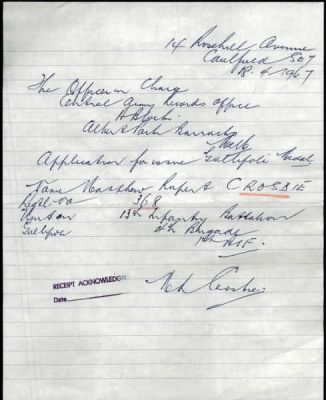 14 Rosehill Avenue
Caulfield SE7
18.4.1967
The Officer in Charge
Central Army Records Office
A Block
Albert Park Barracks
Melb
Application for issue Gallipoli Medal
Name Matthew Rupert CROSBIE
Regtl No 368
Unit on 13th Infantry Battalion
Gallipoli 4th Brigade
1st AIF.
RECEIPT ACKNOWLEDGED
Date